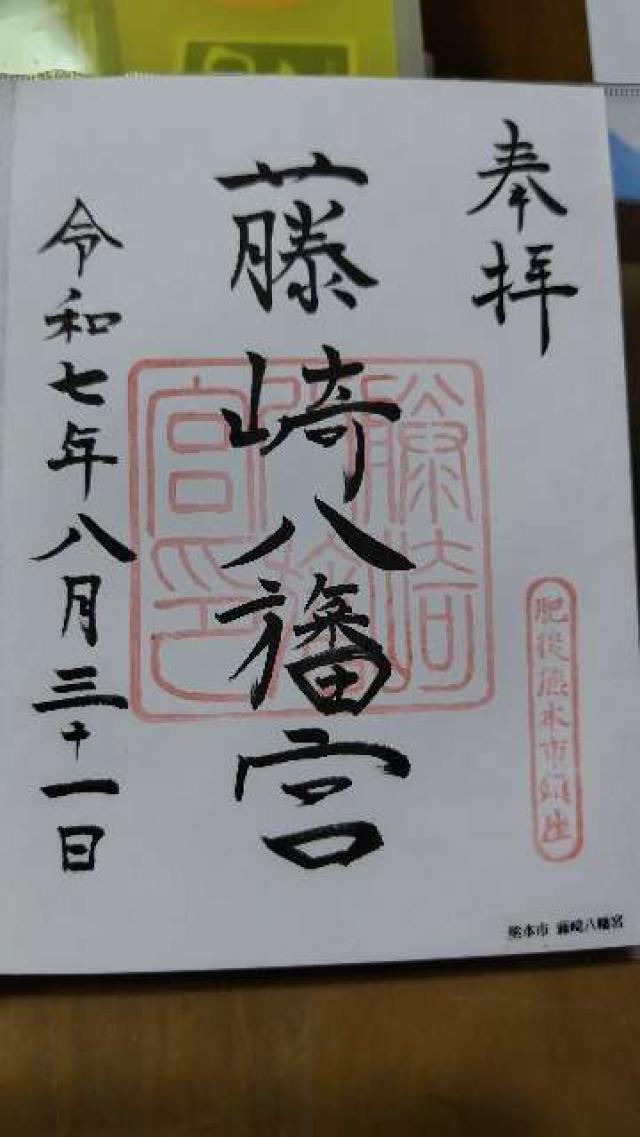 奉拝
藤崎八旛宮
令和七年八月三十一日
藤崎八旛宮印
肥後熊本市鎮座
熊本市 藤崎八旛宮